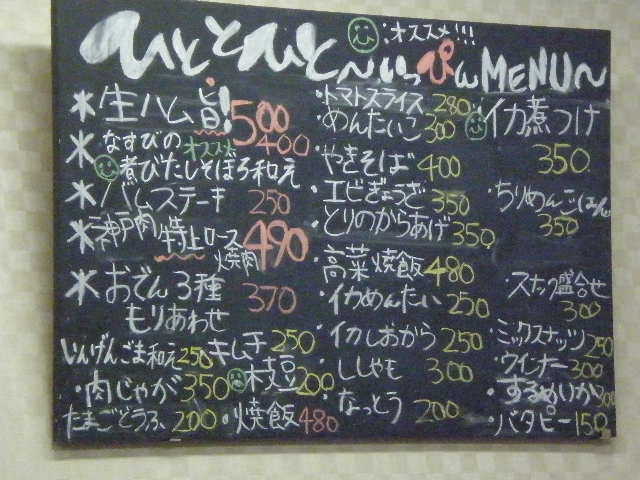 オススメ!!!
ひととひと〜いっぴんMENU〜
*生ハム旨! 500
*なすびの オススメ 400
煮びたしそぼろ和え
*ハムステーキ 250
*神戸肉 特上ロース 焼肉 490
*おでん3種 370
もりあわせ
いんげんごま和え 250
キムチ 250
・肉じゃが 350
枝豆 200
たまごどうふ 200
・焼飯 480
・トマトスライス 280
・めんたいこ 300
・やきそば 400
・エビぎょうざ 350
・とりのからあげ 350
・高菜焼飯 480
・イカめんたい 250
・イカしおから 250
・ししゃも 300
・なっとう 200
イカ煮つけ
350
・ちりめんごはん
350
スナック盛合せ
300
・ミックスナッツ 250
・ウインナー 300
・するめいか 300
・バタピー 150